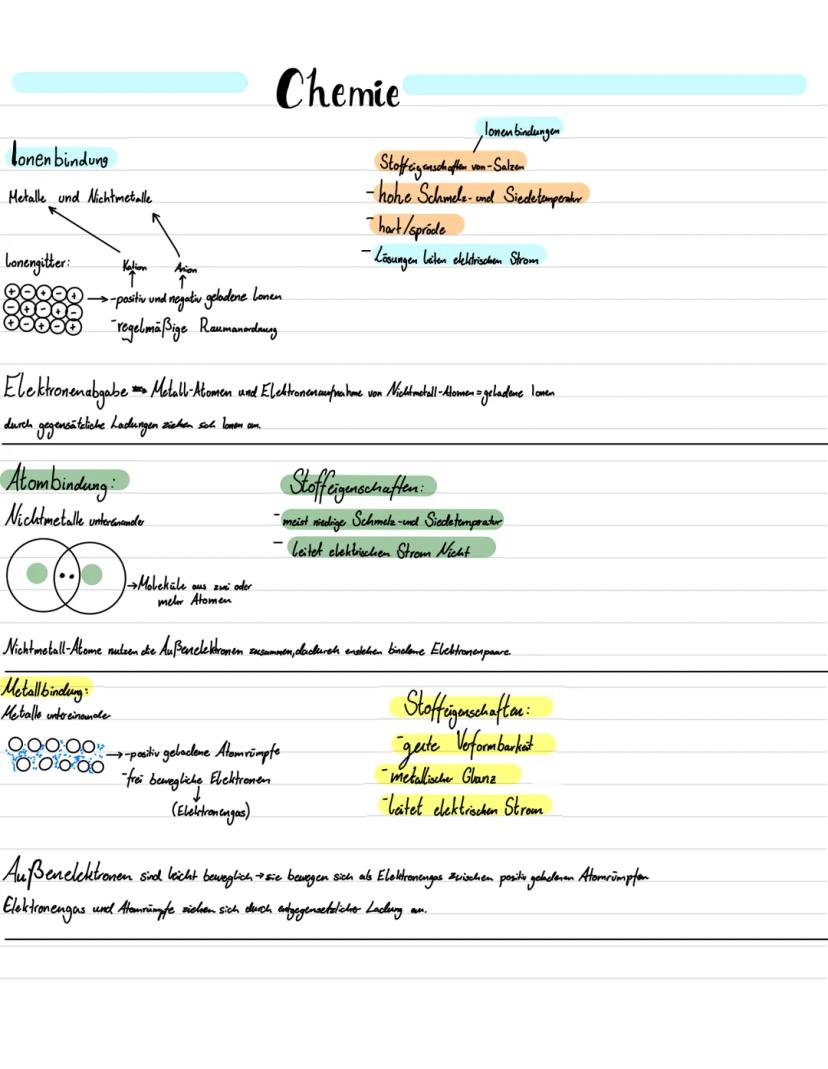 Chemie
Ionenbindungen
Ionenbindung
Stoffeigenschaften von Salzen
Metalle und Nichtmetalle
- hohe Schmelz- und Siedetemperatur
- hart/spröde
- Lösungen leiten elektrischen Strom
Ionengitter:
Kation Anion
+ - + - +
- + - + -
+ - + - +
→ - positiv und negativ geladene Ionen
- regelmäßige Raumanordnung
Elektronenabgabe → Metall-Atomen und Elektronenaufnahme von Nichtmetall-Atomen = geladene Ionen
durch gegensätzliche Ladungen ziehen sich Ionen an.
Atombindung:
Stoffeigenschaften:
Nichtmetalle untereinander
- meist niedrige Schmelz- und Siedetemperatur
- leitet elektrischen Strom Nicht
→ Moleküle aus zwei oder
mehr Atomen
Nichtmetall-Atome nutzen die Außenelektronen zusammen, dadurch enstehen bindene Elektronenpaare.
Metallbindung:
Metalle untereinander
Stoffeigenschaften:
→ - positiv geladene Atomrümpfe
- frei bewegliche Elektronen
(Elektronengas)
- gute Verformbarkeit
- metallischer Glanz
- leitet elektrischen Strom
Außenelektronen sind leicht beweglich → sie bewegen sich als Elektronengas zwischen positiv geladenen Atomrümpfen
Elektronengas und Atomrümpfe ziehen sich durch entgegensetzlicher Ladung an.